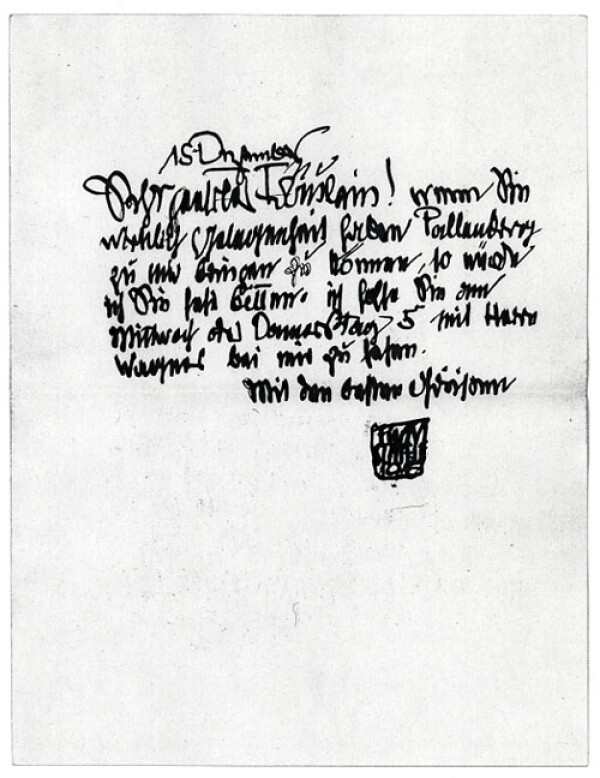 15 Dezember
Sehr geehrtes Fräulein! wenn Sie
wirklich Gelegenheit haben Pallenberg
zu mir bringen zu können, so würde
ich Sie sehr bitten. ich hoffe Sie am
Mittwoch oder Donnerstag 5 mit Herrn
Wagner bei mir zu sehen.
Mit den besten Grüssen
EGON
SCHIELE